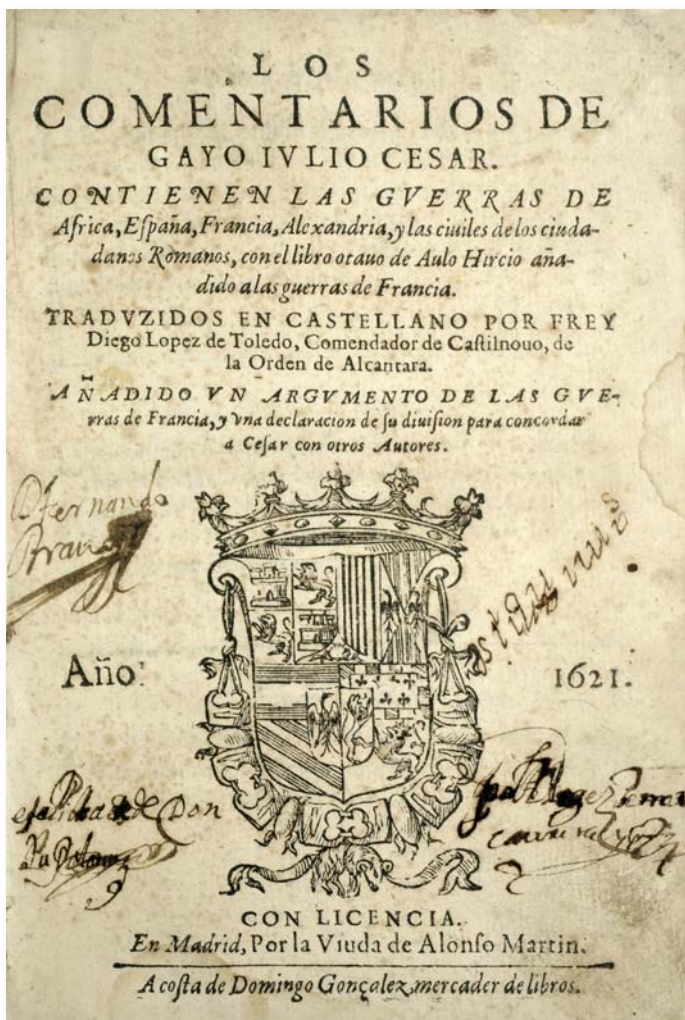 LOS
COMENTARIOS DE
GAYO IVLIO CESAR.
CONTIENEN LAS GVERRAS DE
Africa, Eſpaña, Francia, Alexandria, y las ciuiles de los ciuda-
danos Romanos, con el libro otauo de Aulo Hircio aña-
dido a las guerras de Francia.
TRADVZIDOS EN CASTELLANO POR FREY
Diego Lopez de Toledo, Comendador de Caſtilnouo, de
la Orden de Alcantara.
AÑADIDO VN ARGVMENTO DE LAS GVE-
rras de Francia, y vna declaracion de ſu diuiſion para concordar
a Ceſar con otros Autores.
fernando
Año:
1621.
Don
CON LICENCIA.
En Madrid, Por la Viuda de Alonſo Martin.
A coſta de Domingo Gonçalez, mercader de libros.